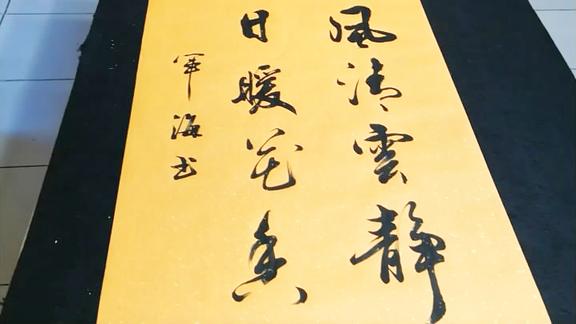 風清雲靜
日暖花香
軍海书